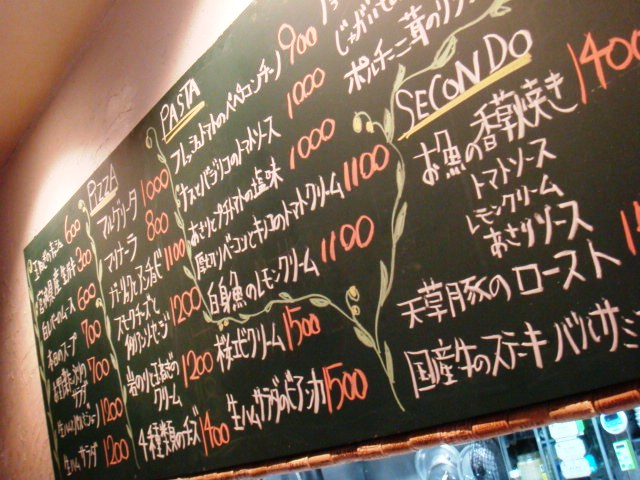 600
300
白レバームース 600
本日のスープ 700
700
1200
生ハムサラダ 1200
PIZZA
マルゲリータ 1000
マリナーラ 800
1100
スモークチーズと 1200
岩のりと玉ねぎの
クリーム 1200
4種類のチーズ 1400
PASTA
フレッシュトマトのペペロンチーノ 900
ナスとパプリコのトマトソース 1000
あさりとプチトマトの塩味 1000
厚切りベーコンとキノコのトマトクリーム 1100
白身魚のレモンクリーム 1100
桜エビクリーム 1500
生ハムサラダのビアンカ 1500
ポルチーニ茸のリゾ
SECONDO
お魚の香草焼き 1400
トマトソース
レモンクリーム
あさりソース
天草豚のロースト
国産牛のステーキ バルサミ